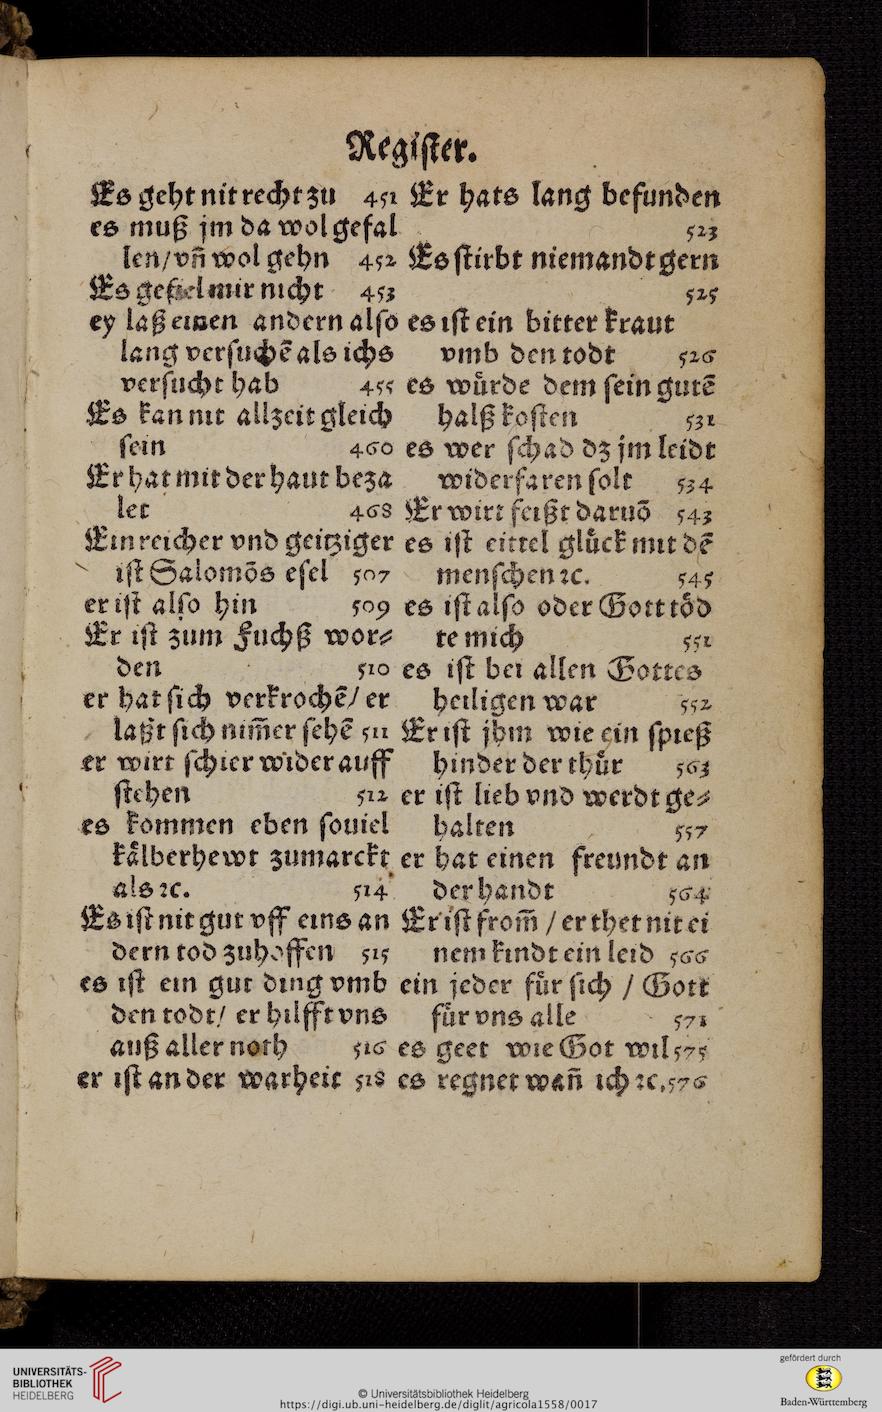 Register.
Es geht nit recht zu 451
es muß jm da wol gefal
len/vñ wol gehn 452
Es gefiel mir nicht 453
ey laß einen andern also
lang versuchẽ als ichs
versucht hab 455
Es kan nit allzeit gleich
sein 460
Er hat mit der haut beza
let 468
Ein reicher vnd geitziger
ist Salomõs esel 507
er ist also hin 509
Er ist zum Fuchß wor⸗
den 510
er hat sich verkrochẽ/ er
laßt sich nim̃er sehẽ 511
er wirt schier wider auff
stehen 512
es kommen eben souiel
kaͤlberhewt zumarckt
als ꝛc. 514
Es ist nit gut vff eins an
dern tod zuhoffen 515
es ist ein gut ding vmb
den todt/ er hilfft vns
auß aller noth 516
er ist an der warheit 518
Er hats lang befunden
523
Es stirbt niemandt gern
525
es ist ein bitter kraut
vmb den todt 526
es wuͤrde dem sein gutẽ
halß kosten 531
es wer schad dz jm leidt
widerfaren solt 534
Er wirt feißt daruõ 543
es ist eittel gluͤck mit dẽ
menschen ꝛc. 545
es ist also oder Gott toͤd
te mich 551
es ist bei allen Gottes
heiligen war 552
Er ist jhm wie ein spieß
hinder der thuͤr 563
er ist lieb vnd werdt ge⸗
halten 557
er hat einen freundt an
der handt 564
Er ist from̃ / er thet nit ei
nem kindt ein leid 566
ein jeder fuͤr sich / Gott
fuͤr vns alle 571
es geet wie Got wil 575
es regnet wañ ich ꝛc. 576
UNIVERSITÄTS-
BIBLIOTHEK
HEIDELBERG
© Universitätsbibliothek Heidelberg
https://digi.ub.uni-heidelberg.de/diglit/agricola1558/0017
gefördert durch
Baden-Württemberg